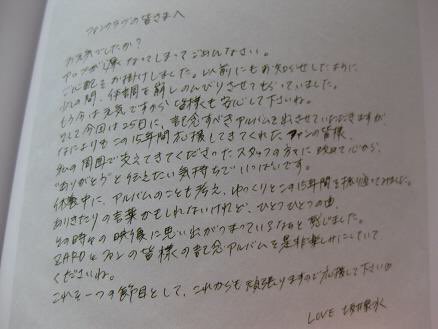 ファンクラブの皆さまへ
お元気でしたか?
アップが遅くなってしまってごめんなさい。
ご心配をお掛けしました。以前にもお知らせしたように
少しの間、体調を崩しのんびりさせてもらっていました。
もう今は元気ですから皆様も安心して下さいね。
そして今回は25日に、記念すべきアルバムを出させていただきますが
なによりもこの15年間応援してきてくれたファンの皆様、
私の周囲で支えてきてくださったスタッフの方々に改めて心から、
"ありがとう"と伝えたい気持ちでいっぱいです。
休養中に、アルバムのことも考え、ゆっくりとこの15年間を振り返ってみました。
ありきたりの言葉かもしれないけれど、ひとつひとつの曲、
その時々の映像に思い出がつまっているなあと感じました。
ZARDとファンの皆様の記念アルバムを是非楽しみにしていて
くださいね。
これを一つの節目として、これからも頑張りますので応援して下さい
LOVE 坂井泉水